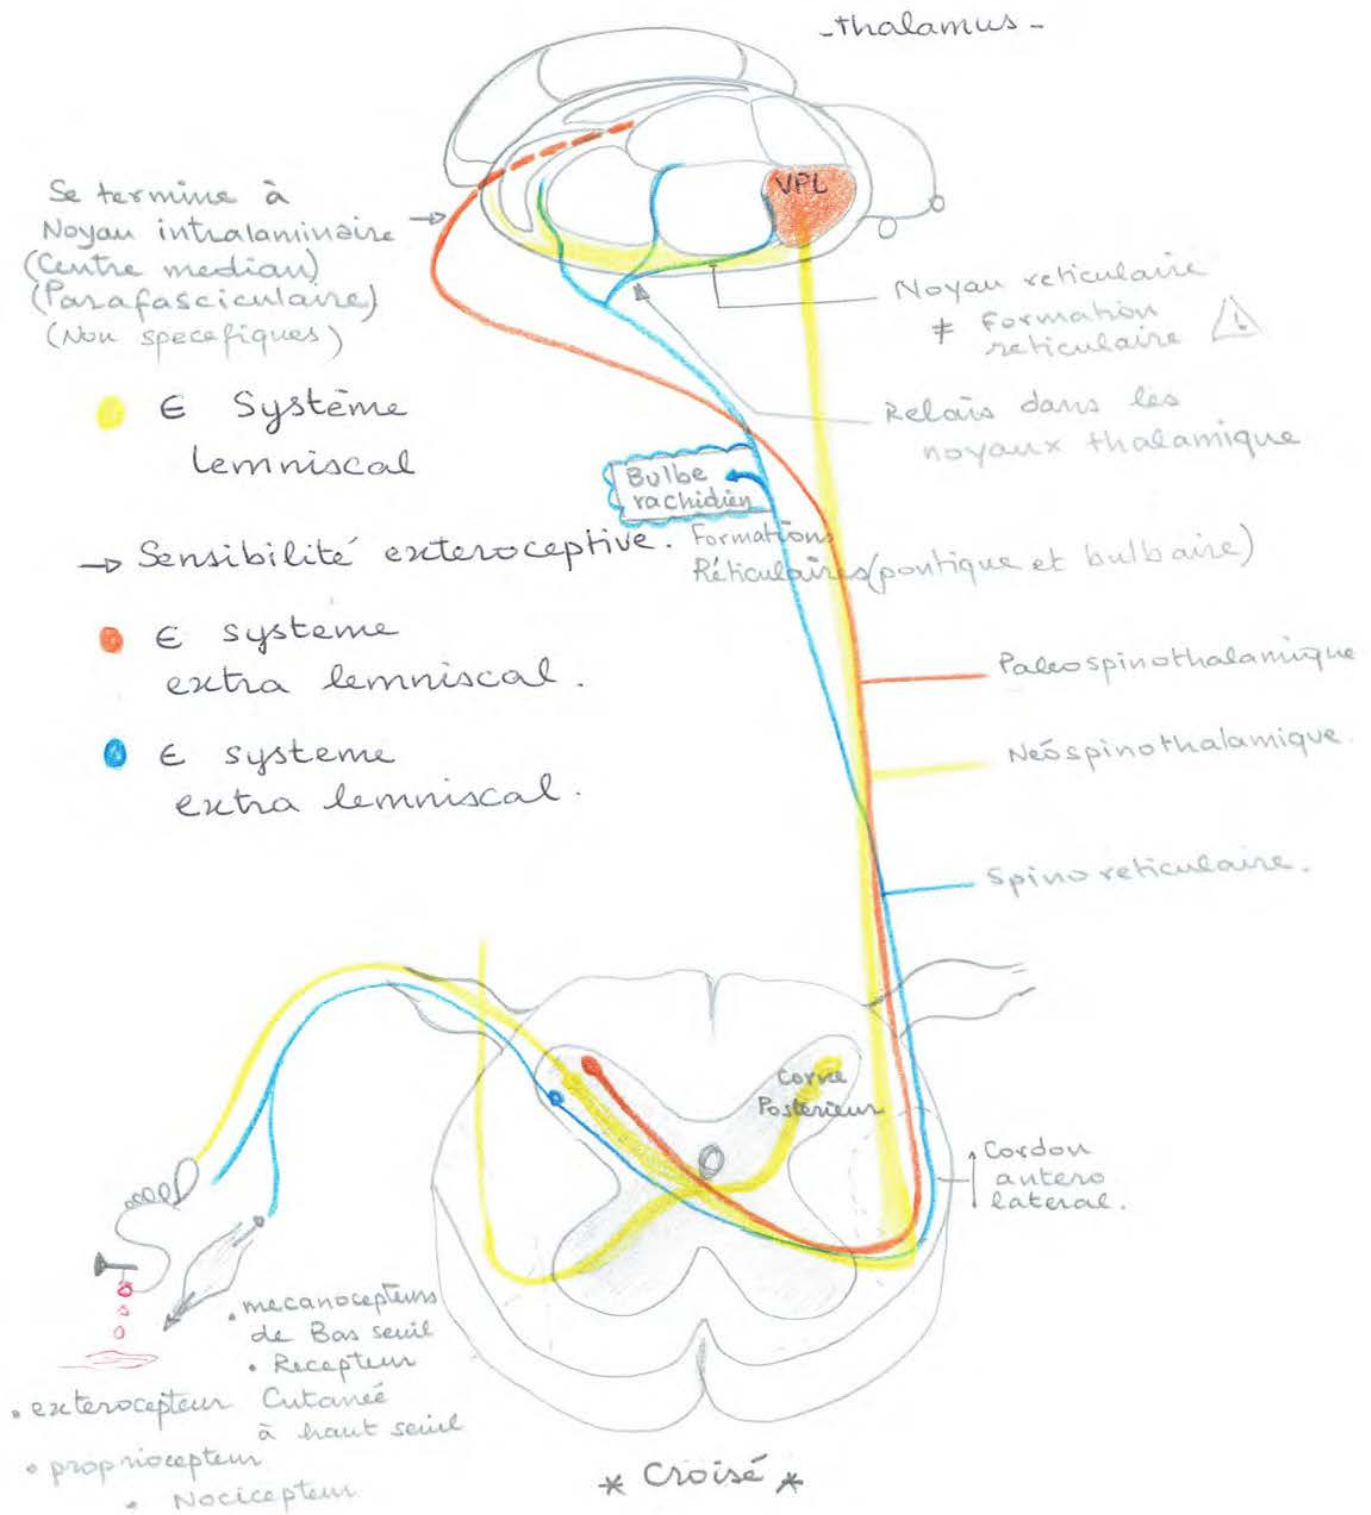 -thalamus-
VPL
Se termine à
Noyau intralaminaire
(Centre median)
(Parafasciculaire)
(Non specefiques)
Noyau reticulaire
≠ Formation
reticulaire
!
Relais dans les
noyaux thalamique
∈ Système
lemniscal
Bulbe
rachidien
→ Sensibilité exteroceptive.
Formations
Réticulaires (pontique et bulbaire)
∈ système
extra lemniscal.
∈ systeme
extra lemniscal.
Paleospinothalamique
Neóspinothalamique.
Spino reticulaire.
Corne
Posterieur
Cordon
antero
lateral.
• mecanocepteurs
de Bas seuil
• Recepteur
Cutaneé
à haut seuil
• exterocepteur
• propriocepteur
• Nocicepteur
* Croisé *